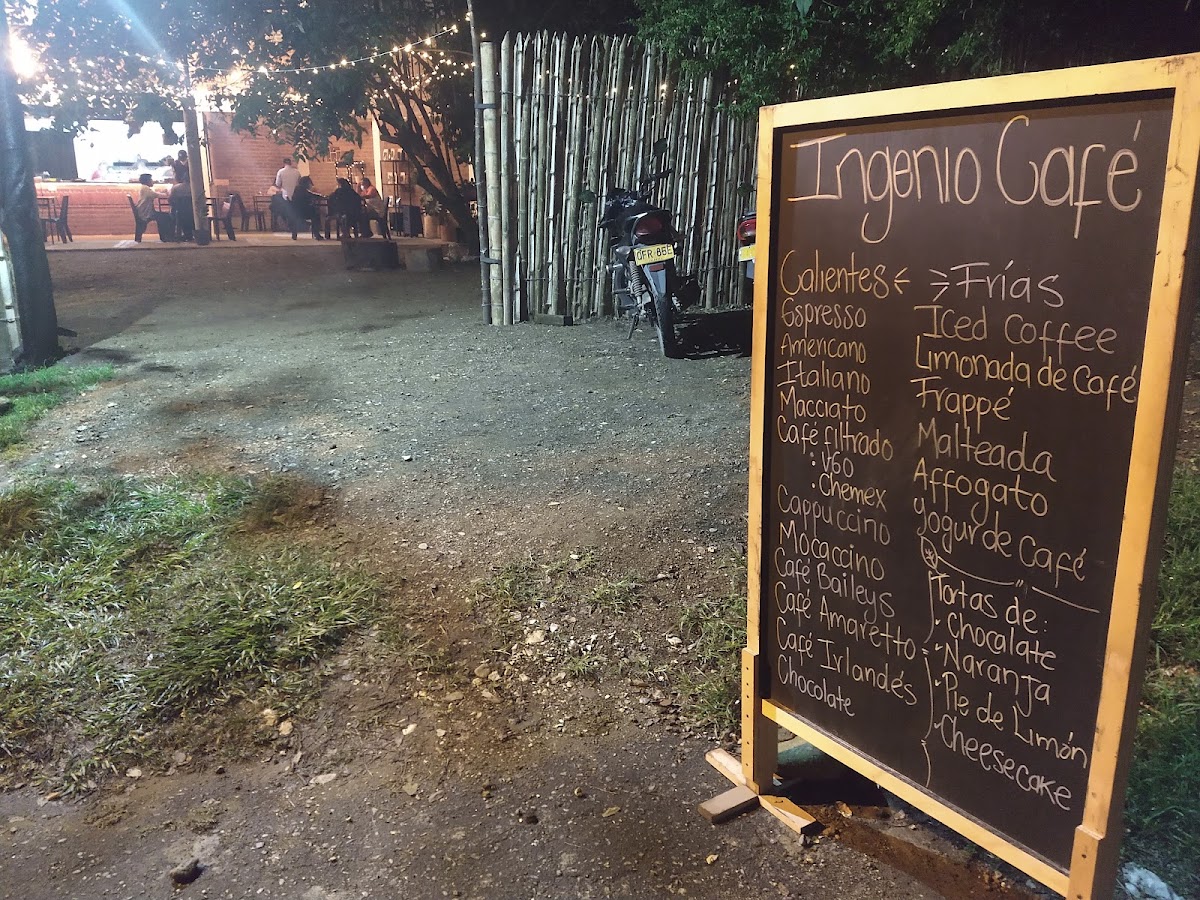 Ingenio Café
Calientes
Espresso
Americano
Italiano
Macciato
Café filtrado
• V60
• Chemex
Cappuccino
Mocaccino
Café Baileys
Café Amaretto
Café Irlandés
Chocolate
Frías
Iced Coffee
Limonada de Café
Frappé
Malteada
Affogato
yogur de Café
Tortas de:
• chocalate
• Naranja
• Pie de Limón
• Cheesecake